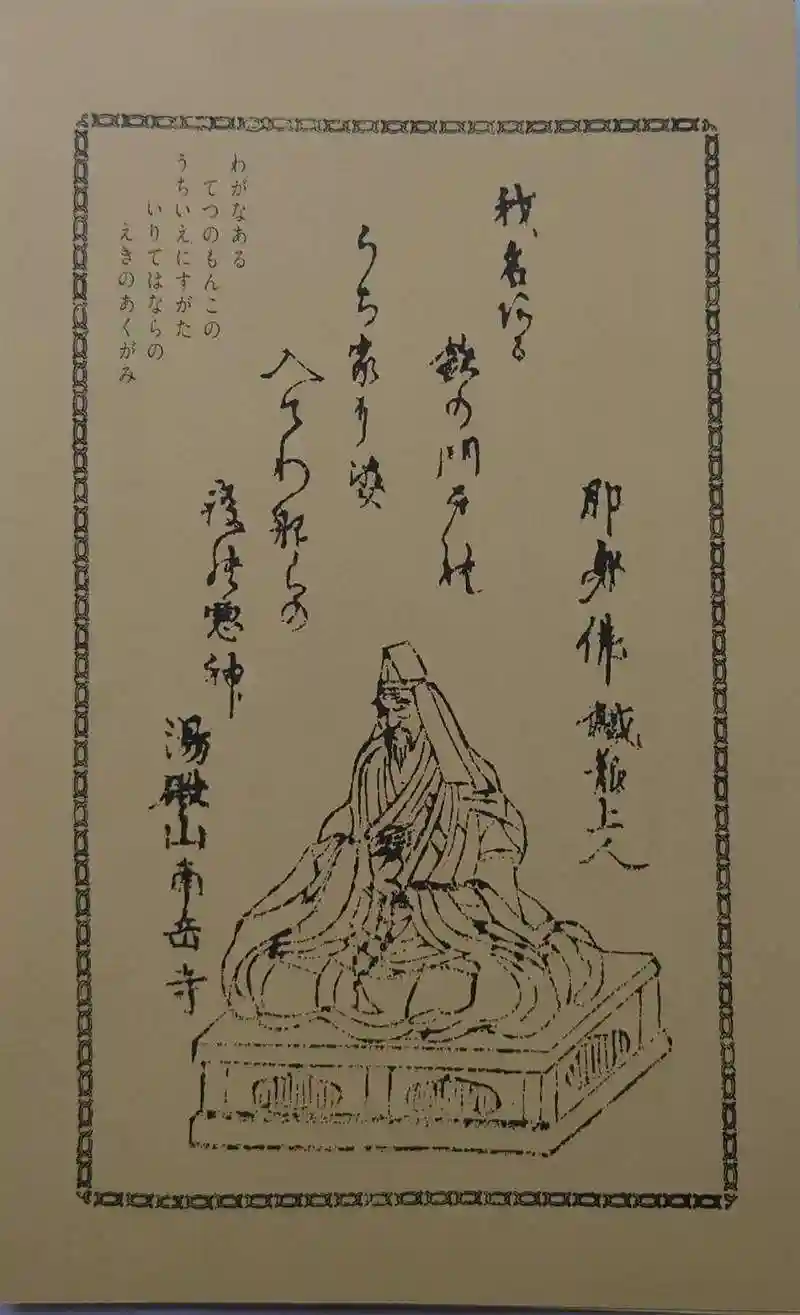 即身佛鐵龍上人
我名ある
鉄の門戸の
うち家に姿
入てわ那らの
疫の悪神
湯殿山南岳寺
わがなある
てつのもんこの
うちいえにすがた
いりてはならの
えきのあくがみ